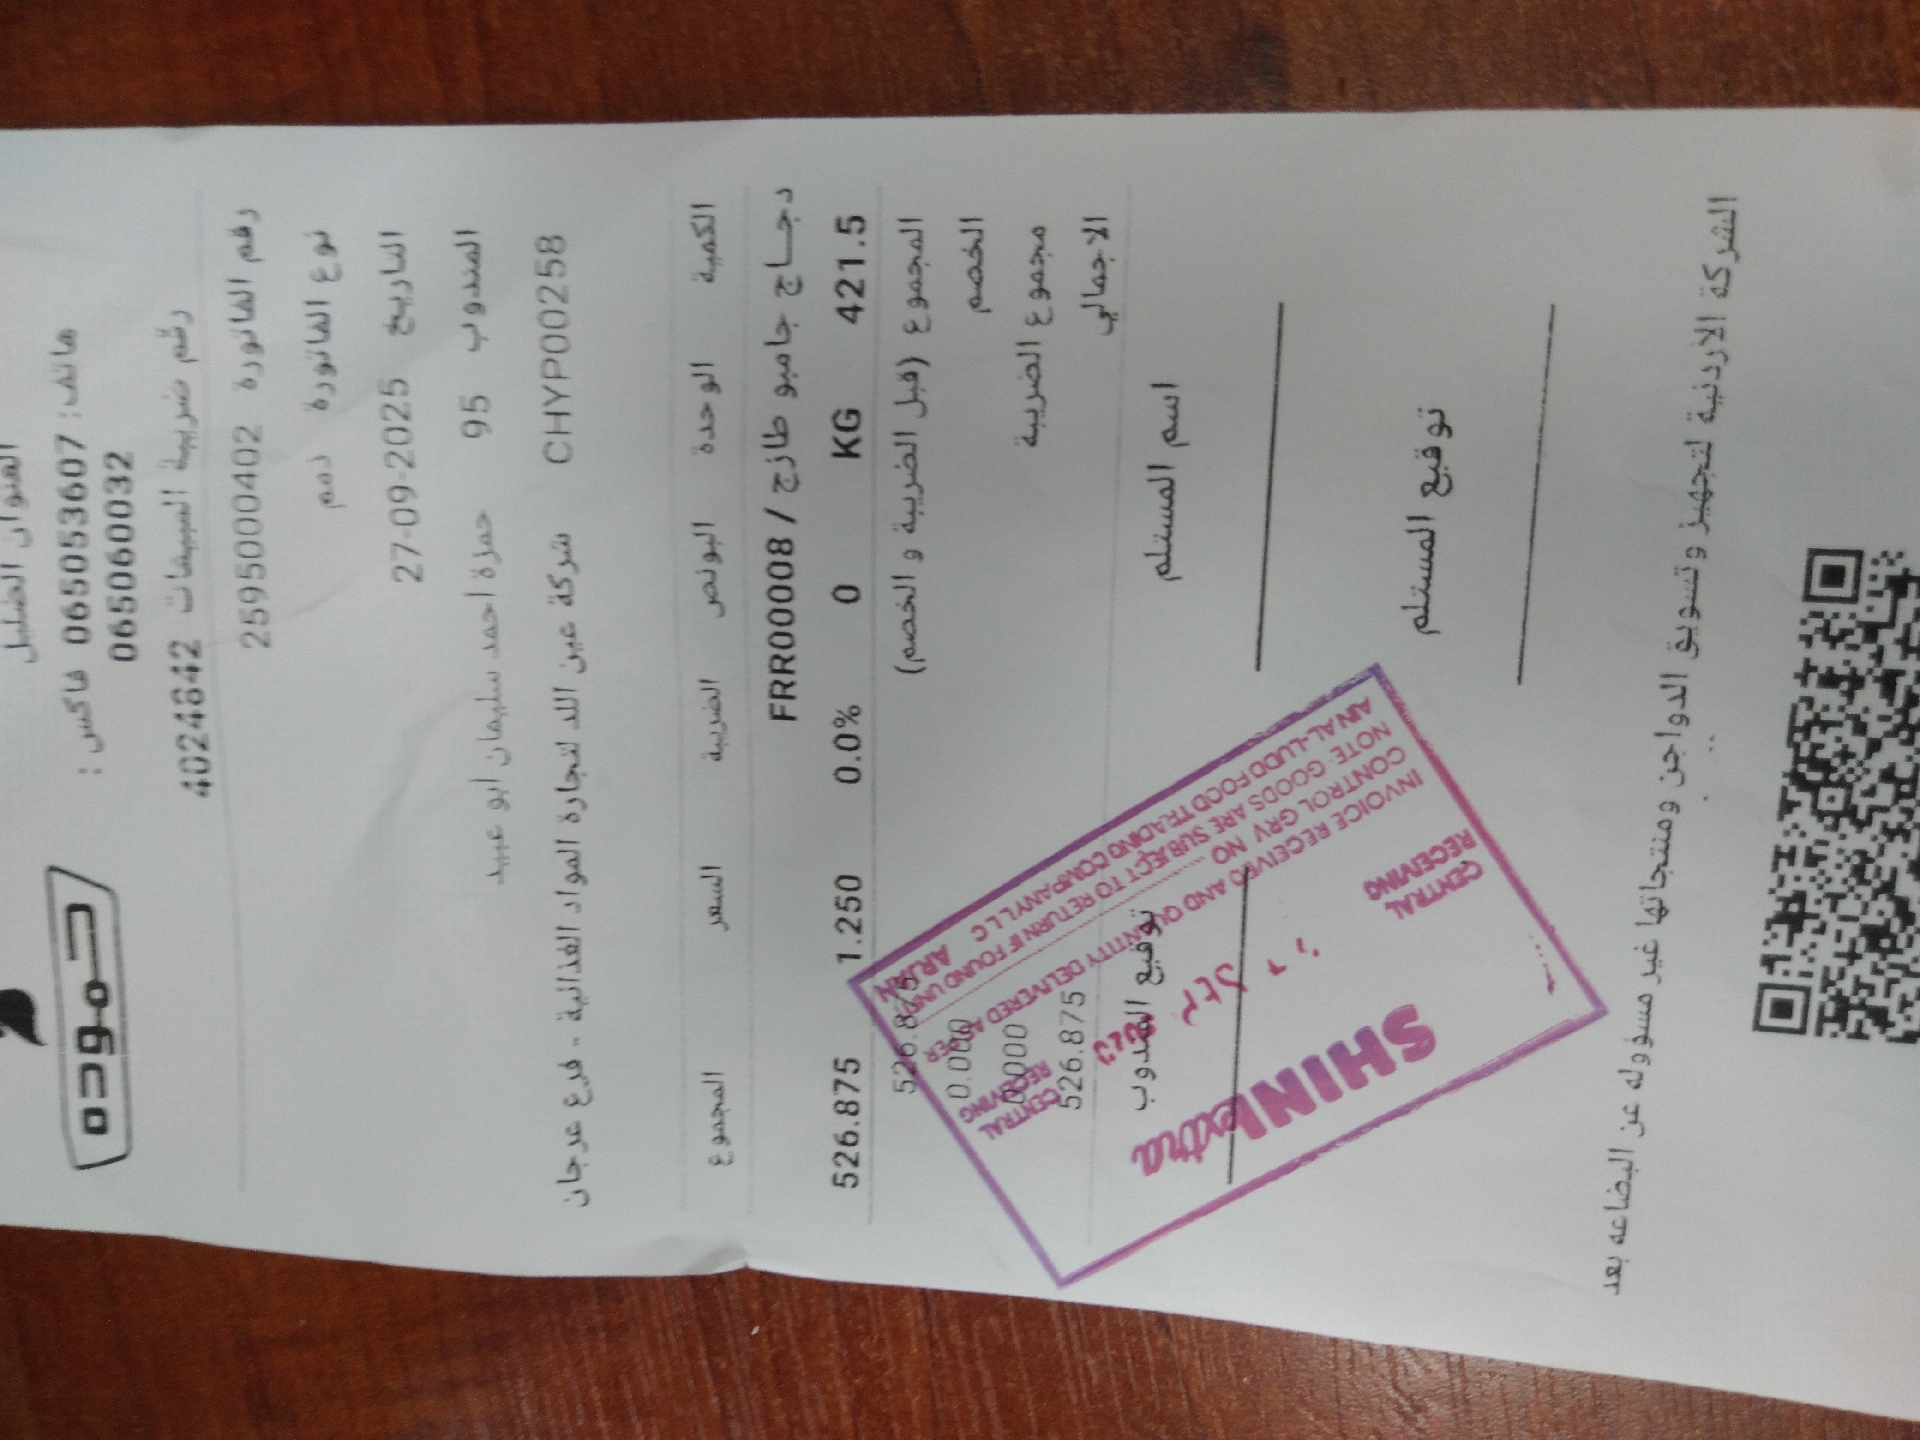 حمودة
العنوان الضليل
هاتف: 065053607 فاكس:
065060032
رقم ضريبة المبيعات 4024642
رقم الفاتورة 259500402
نوع الفاتورة ذمم
التاريخ 27-09-2025
المندوب 95 حمزة احمد سليمان ابو عبيد
CHYP00258 شركة عين اللد لتجارة المواد الغذائية - فرع عرجان
الكمية الوحدة البونص الضريبة السعر المجموع
دجاج جامبو طازج / FRR00008
421.5 KG 0 0.0% 1.250 526.875
المجموع (قبل الضريبة و الخصم) 526.875
الخصم 0.000
مجموع الضريبة 0.000
الاجمالي 526.875
اسم المستلم توقيع المندوب
توقيع المستلم
SHINExtra
CENTRAL RECEIVING
CENTRAL RECEIVING
INVOICE RECEIVED AND QUANTITY DELIVERED AS PER
CONTROL GRV NO
NOTE GOODS ARE SUBJECT TO RETURN IF FOUND
AIN AL-LUDD FOOD TRADING COMPANY L L C ARJAN
الشركة الاردنية لتجهيز وتسويق الدواجن ومنتجاتها غير مسؤوله عن البضاعه بعد